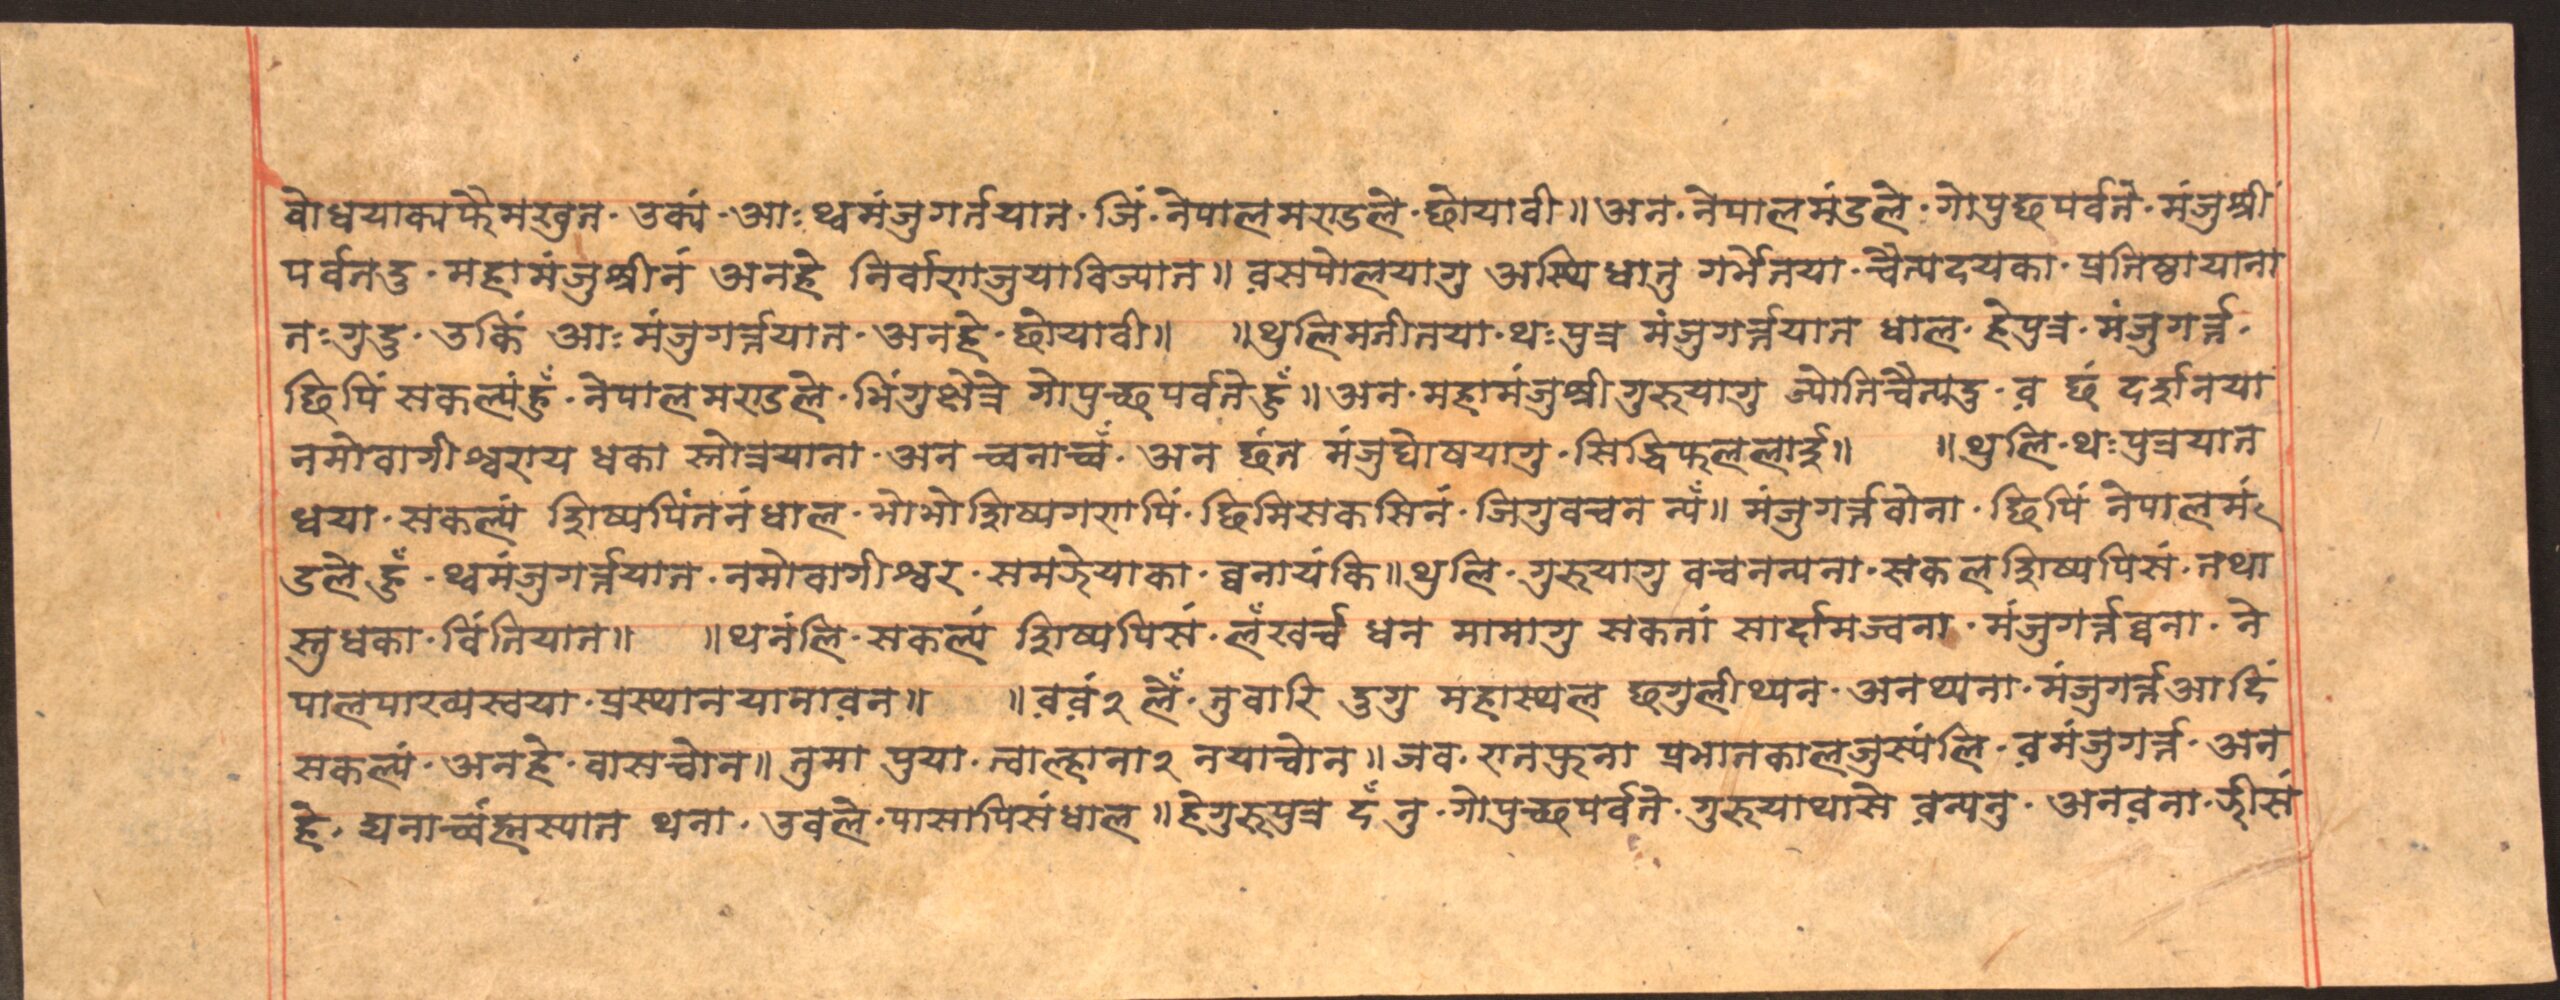 बोधयाकाफैमखुत· उकां· आः थ्वमंजुगर्तयात· जिं· नेपालमण्डले· छोयावी॥ अन· नेपालमंडले· गोपुछपर्वते· मंजुश्री
पर्वतदु· महामंजुश्रीनं अनहे निर्वाणजुयाविज्यात॥ व़सपोलयागु अस्थिधातु गर्भेतया· चैत्यदयका· प्रतिष्ठायाना
तःगुदु· उकिं आः मंजुगर्त्तयात· अनहे· छोयावी॥ ॥थुलिमतीतया· थःपुत्र मंजुगर्त्तयात धाल· हेपुत्र· मंजुगर्त्त·
छिपिं सकल्यंहुँ· नेपालमण्डले· भिंगुक्षेत्रे गोपुच्छपर्वतेहुँ॥ अन· महामंजुश्रीगुरुयागु ज्योतिचैत्यदु· व़ छं दर्शनया
नमोवागीश्वराय धका स्तोत्रयाना· अन च्वनाच्वँ· अन छंत मंजुघोषयागु· सिद्धिफललाई॥ ॥थुलि· थःपुत्रयात
धया· सकल्यं शिष्यपिंतनंधाल· भोभोशिष्यगणपिं· छिमिसकसिनं· जिगुवचन न्यँ॥ मंजुगर्त्तवोना· छिपिं नेपालमं
डलेहुँ· थ्वमंजुगर्त्तयात· नमोवागीश्वर· समझेयाका· ब्वनायंकि॥ थुलि· गुरुयागु वचनन्यना· सकलशिष्यपिसं· तथा
स्तुधका· विंतियात॥ ॥थनंलि· सकल्यं शिष्यपिसं· लँखर्च धन मामागु सकतां सार्दामज्वना· मंजुगर्त्तब्वना· ने
पालपाखास्वया· प्रस्थानयानाव़न॥ ॥व़व़ं२ लँे· तुवारि दुगु महास्थल छगुलीथ्यन· अनथ्यना· मंजुगर्त्तआदिं
सकल्यं· अनहे· वासच्वोन॥ तुमा पुया· त्वाल्हाना२ नयाच्वोन॥ जव· रातफुना प्रभातकालजुस्यंलि· व़मंजुगर्त्त· अन
हे· द्यनाच्वंह्मस्यात थना· उवले· पासापिसंधाल॥ हेगुरुपुत्र दँ नु· गोपुच्छपर्वते· गुरुयाथासे व़न्यनु· अनव़ना· झीसं